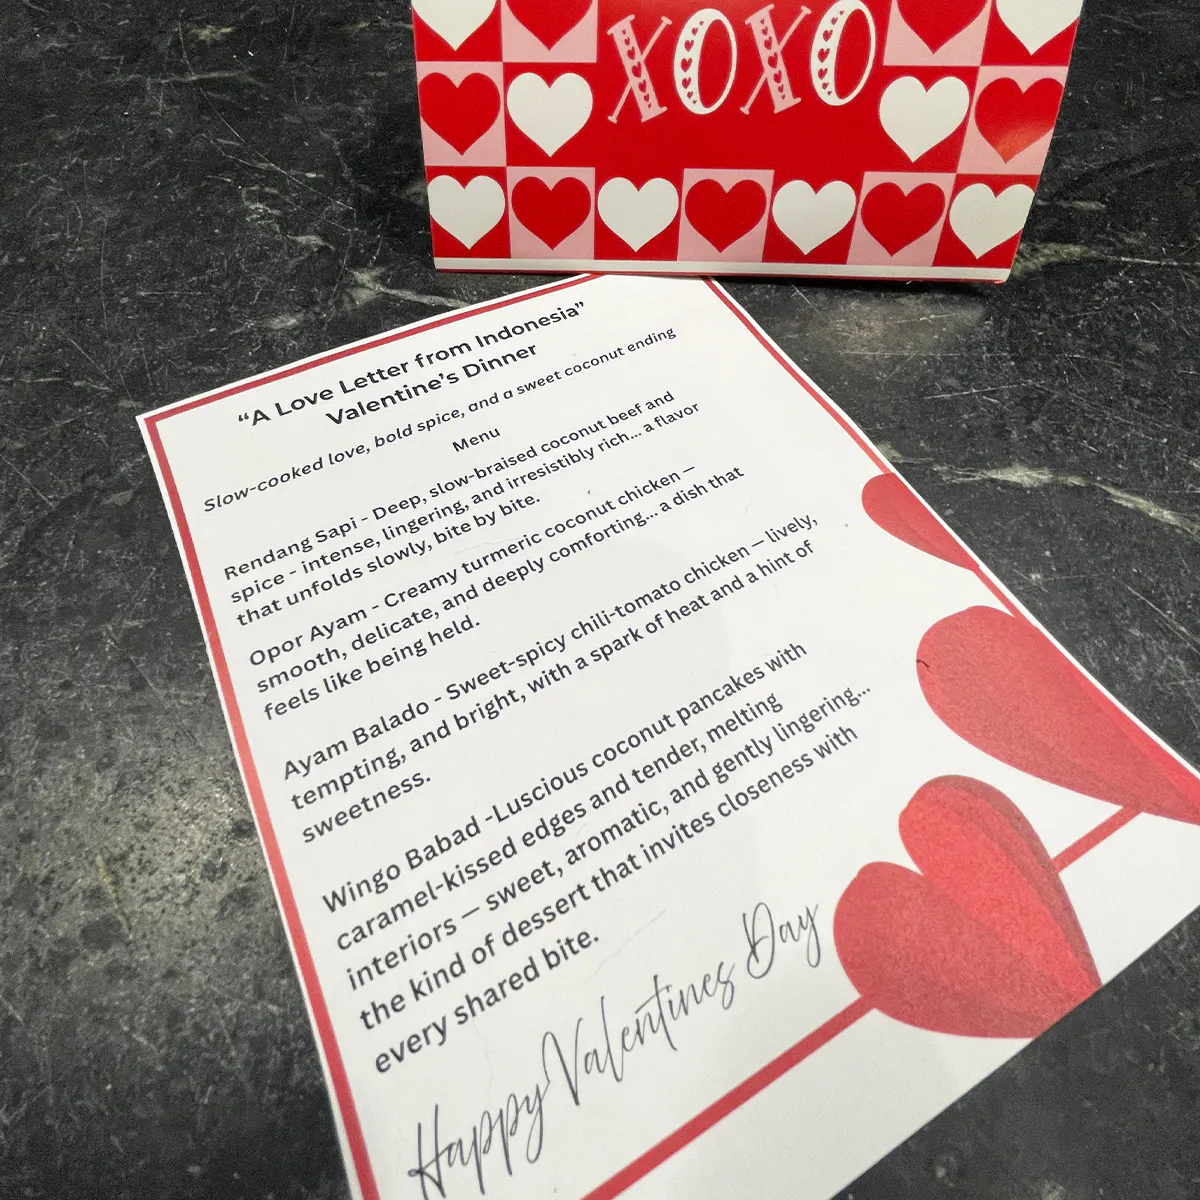 XOXO
“A Love Letter from Indonesia”
Valentine’s Dinner
Slow-cooked love, bold spice, and a sweet coconut ending
Menu
Rendang Sapi - Deep, slow-braised coconut beef and
spice - intense, lingering, and irresistibly rich... a flavor
that unfolds slowly, bite by bite.
Opor Ayam - Creamy turmeric coconut chicken —
smooth, delicate, and deeply comforting... a dish that
feels like being held.
Ayam Balado - Sweet-spicy chili-tomato chicken — lively,
tempting, and bright, with a spark of heat and a hint of
sweetness.
Wingo Babad -Luscious coconut pancakes with
caramel-kissed edges and tender, melting
interiors — sweet, aromatic, and gently lingering...
the kind of dessert that invites closeness with
every shared bite.
Happy Valentines Day